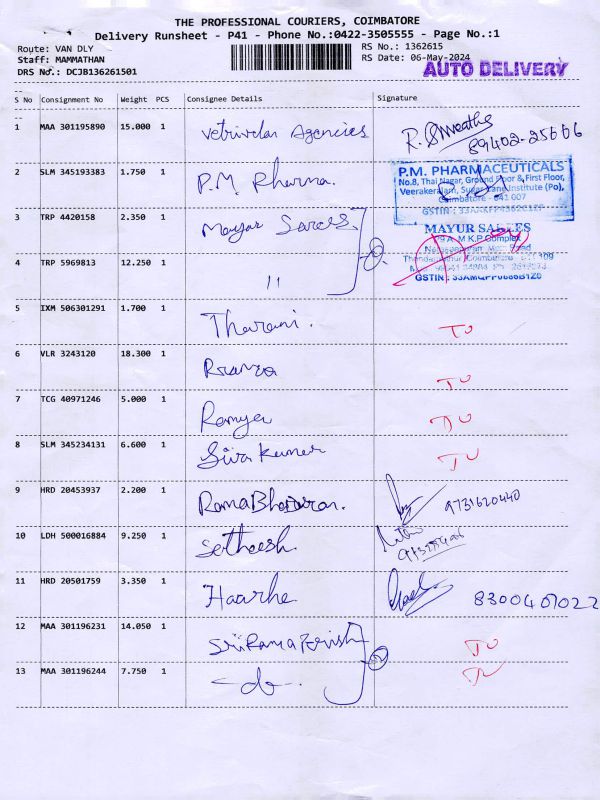 THE PROFESSIONAL COURIERS, COIMBATORE
Delivery Runsheet - P41 - Phone No.:0422-3505555 - Page No.:1
Route: VAN DLY
RS No.: 1362615
Staff: MAMMATHAN
RS Date: 06-May-2024
DRS No.: DCJB136261501
AUTO DELIVERY
S No Consignment No Weight PCS Consignee Details Signature
1 MAA 301195890 15.000 1 Vetrivelan Agencies R. Sweatha
89402-25666
2 SLM 345193383 1.750 1 P.M. Pharma.
P.M. PHARMACEUTICALS
No.8, Thai Nagar, Ground Floor & First Floor,
Veerakeralam, Institute (Po),
Coimbatore - 641 007
GSTIN :
3 TRP 4420158 2.350 1 Mayur Sarees.
MAYUR SAREES
M.K.P Complex
Road
4 TRP 5969813 12.250 1 11 2
GSTIN :
5 IXM 506301291 1.700 1 Tharani. TU
6 VLR 3243120 18.300 1 TU
7 TCG 40971246 5.000 1 Ramya TU
8 SLM 345234131 6.600 1 Siva Kumar TU
9 HRD 20453937 2.200 1 9731620440
10 LDH 500016884 9.250 1 Satheesh.
11 HRD 20501759 3.350 1 Haarhe 8300407022
12 MAA 301196231 14.050 1 TU
13 MAA 301196244 7.750 1 -do-. 2 TU